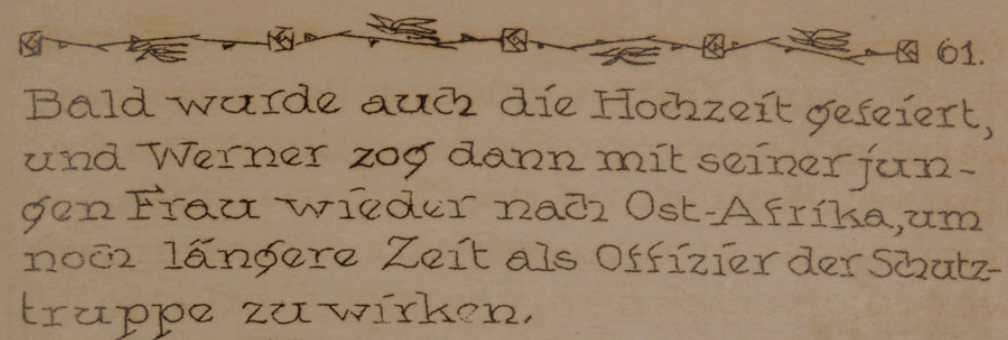 61.
Bald wurde auch die Hochzeit gefeiert,
und Werner zog dann mit seiner jun-
gen Frau wieder nach Ost-Afrika, um
noch längere Zeit als Offizier der Schutz-
truppe zu wirken.